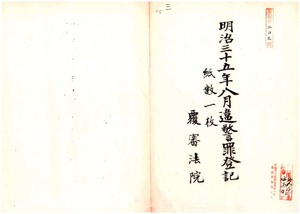 明治三十五年八月違警罪登記
紙數一枚
覆審法院
三